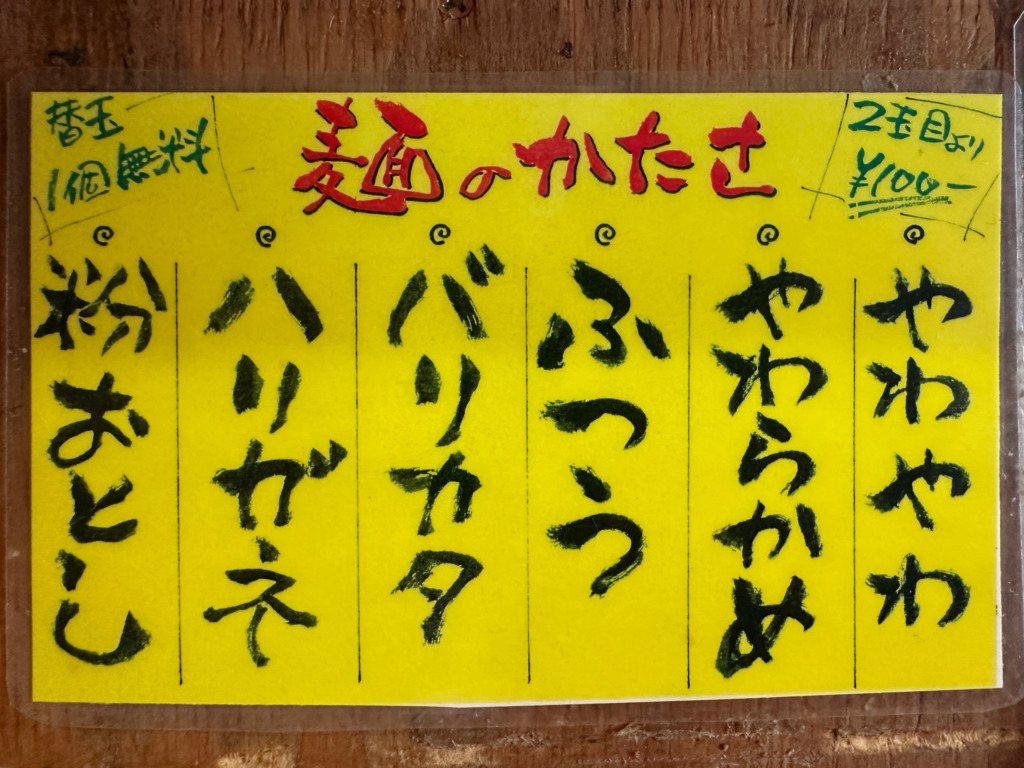 麺のかたさ
替玉
1個無料
2玉目より
¥100-
やわやわ
やわらかめ
ふつう
バリカタ
ハリガネ
粉おとし